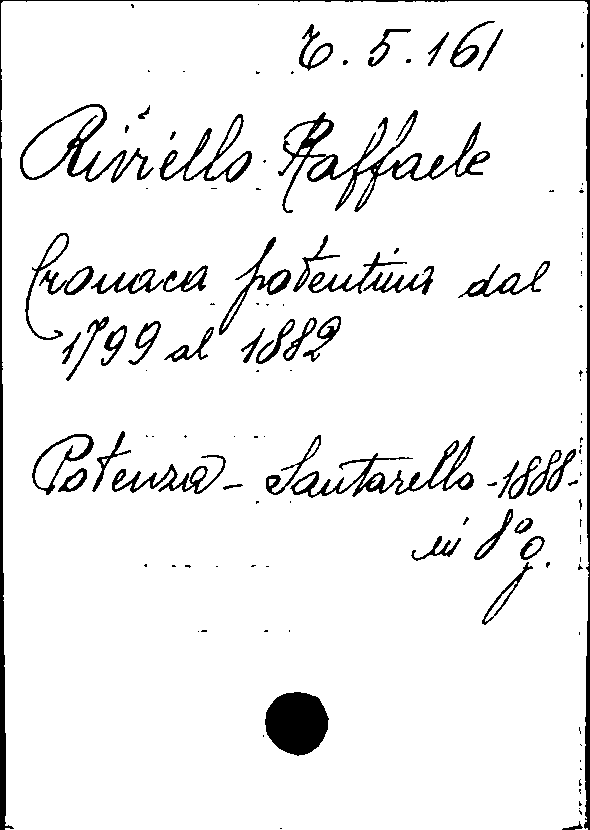 6.5.161
Riviello Raffaele
Cronaca potentina dal
1799 al 1882
Potenza - Santarello - 1888 -
in 8° g.